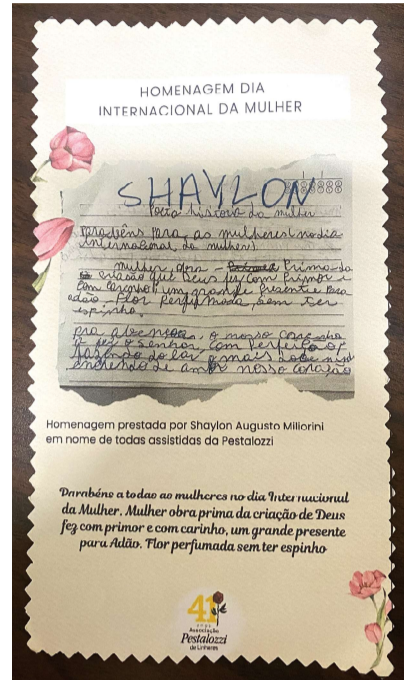 HOMENAGEM DIA
INTERNACIONAL DA MULHER
SHAYLON
Poeta história da mulher
parabéns para as mulheres no dia
internacional da mulher
mulher obra - Prima da
criação que Deus fez com Primor e
com carinho, um grande Presente Para
adão. Flor Perfumada, sem ter
espinho.
pra abençoar, o nosso
fez o senhor com Perfeição
fazendo do lar, o mais
enchendo de amor nosso coração
Homenagem prestada por Shaylon Augusto Miliorini
em nome de todas assistidas da Pestalozzi
Parabéns a todas as mulheres no dia Internacional
da Mulher. Mulher obra prima da criação de Deus
fez com primor e com carinho, um grande presente
para Adão. Flor perfumada sem ter espinho
41
anos
Associação
Pestalozzi
de Linhares